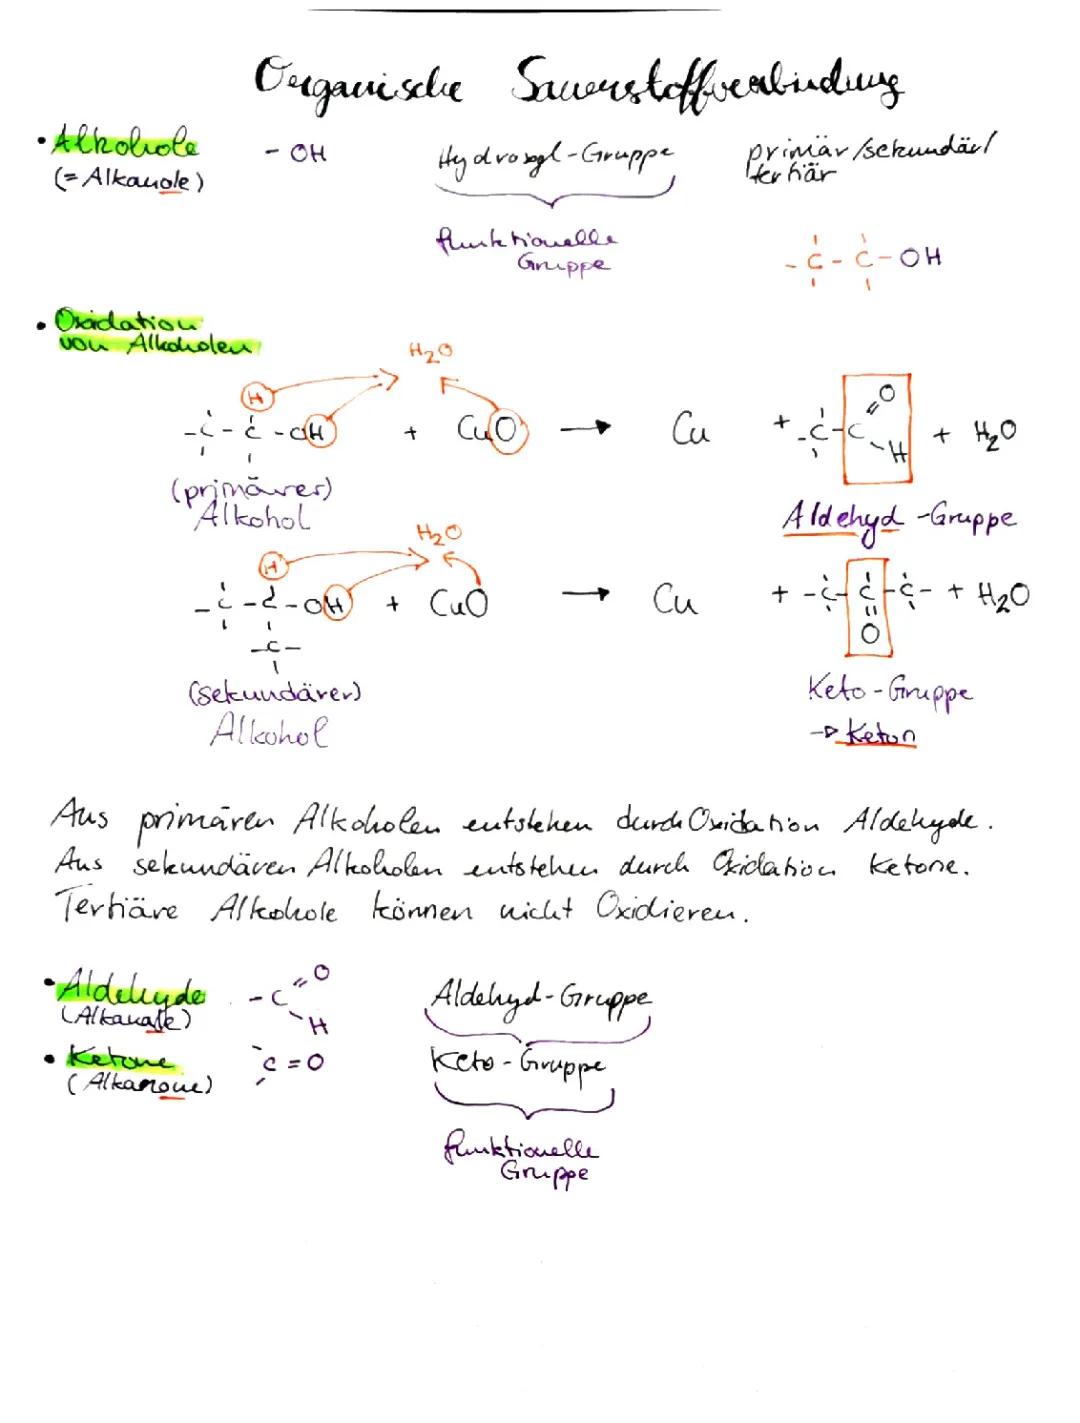 Organische Sauerstoffverbindung
• Alkohole - OH Hydroxyl-Gruppe primär/sekundär/
(= Alkanole) tertiär
funktionelle
Gruppe
- C - C - OH
• Oxidation
von Alkoholen
H₂O
H
- C - C - OH + CuO → Cu + - C - C = O H + H₂O
(primärer)
Alkohol
Aldehyd-Gruppe
H₂O
H
- C - C - OH + CuO → Cu + - C - C - C - + H₂O
- C - O
(sekundärer) Keto-Gruppe
Alkohol → Keton
Aus primären Alkoholen entstehen durch Oxidation Aldehyde.
Aus sekundären Alkoholen entstehen durch Oxidation Ketone.
Tertiäre Alkohole können nicht Oxidieren.
• Aldehyde - C = O H Aldehyd-Gruppe
• Ketone C = O Keto-Gruppe
(Alkanone)
funktionelle
Gruppe